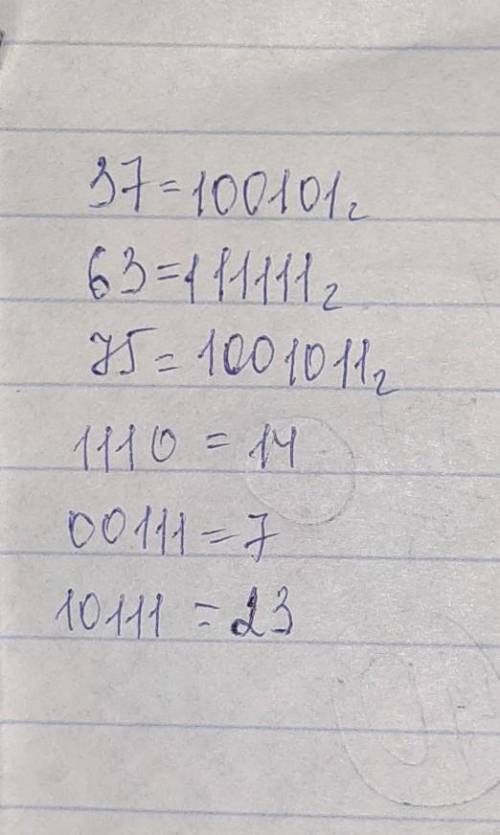 37=100101₂
63=111111₂
75=1001011₂
1110=14
00111=7
10111=23